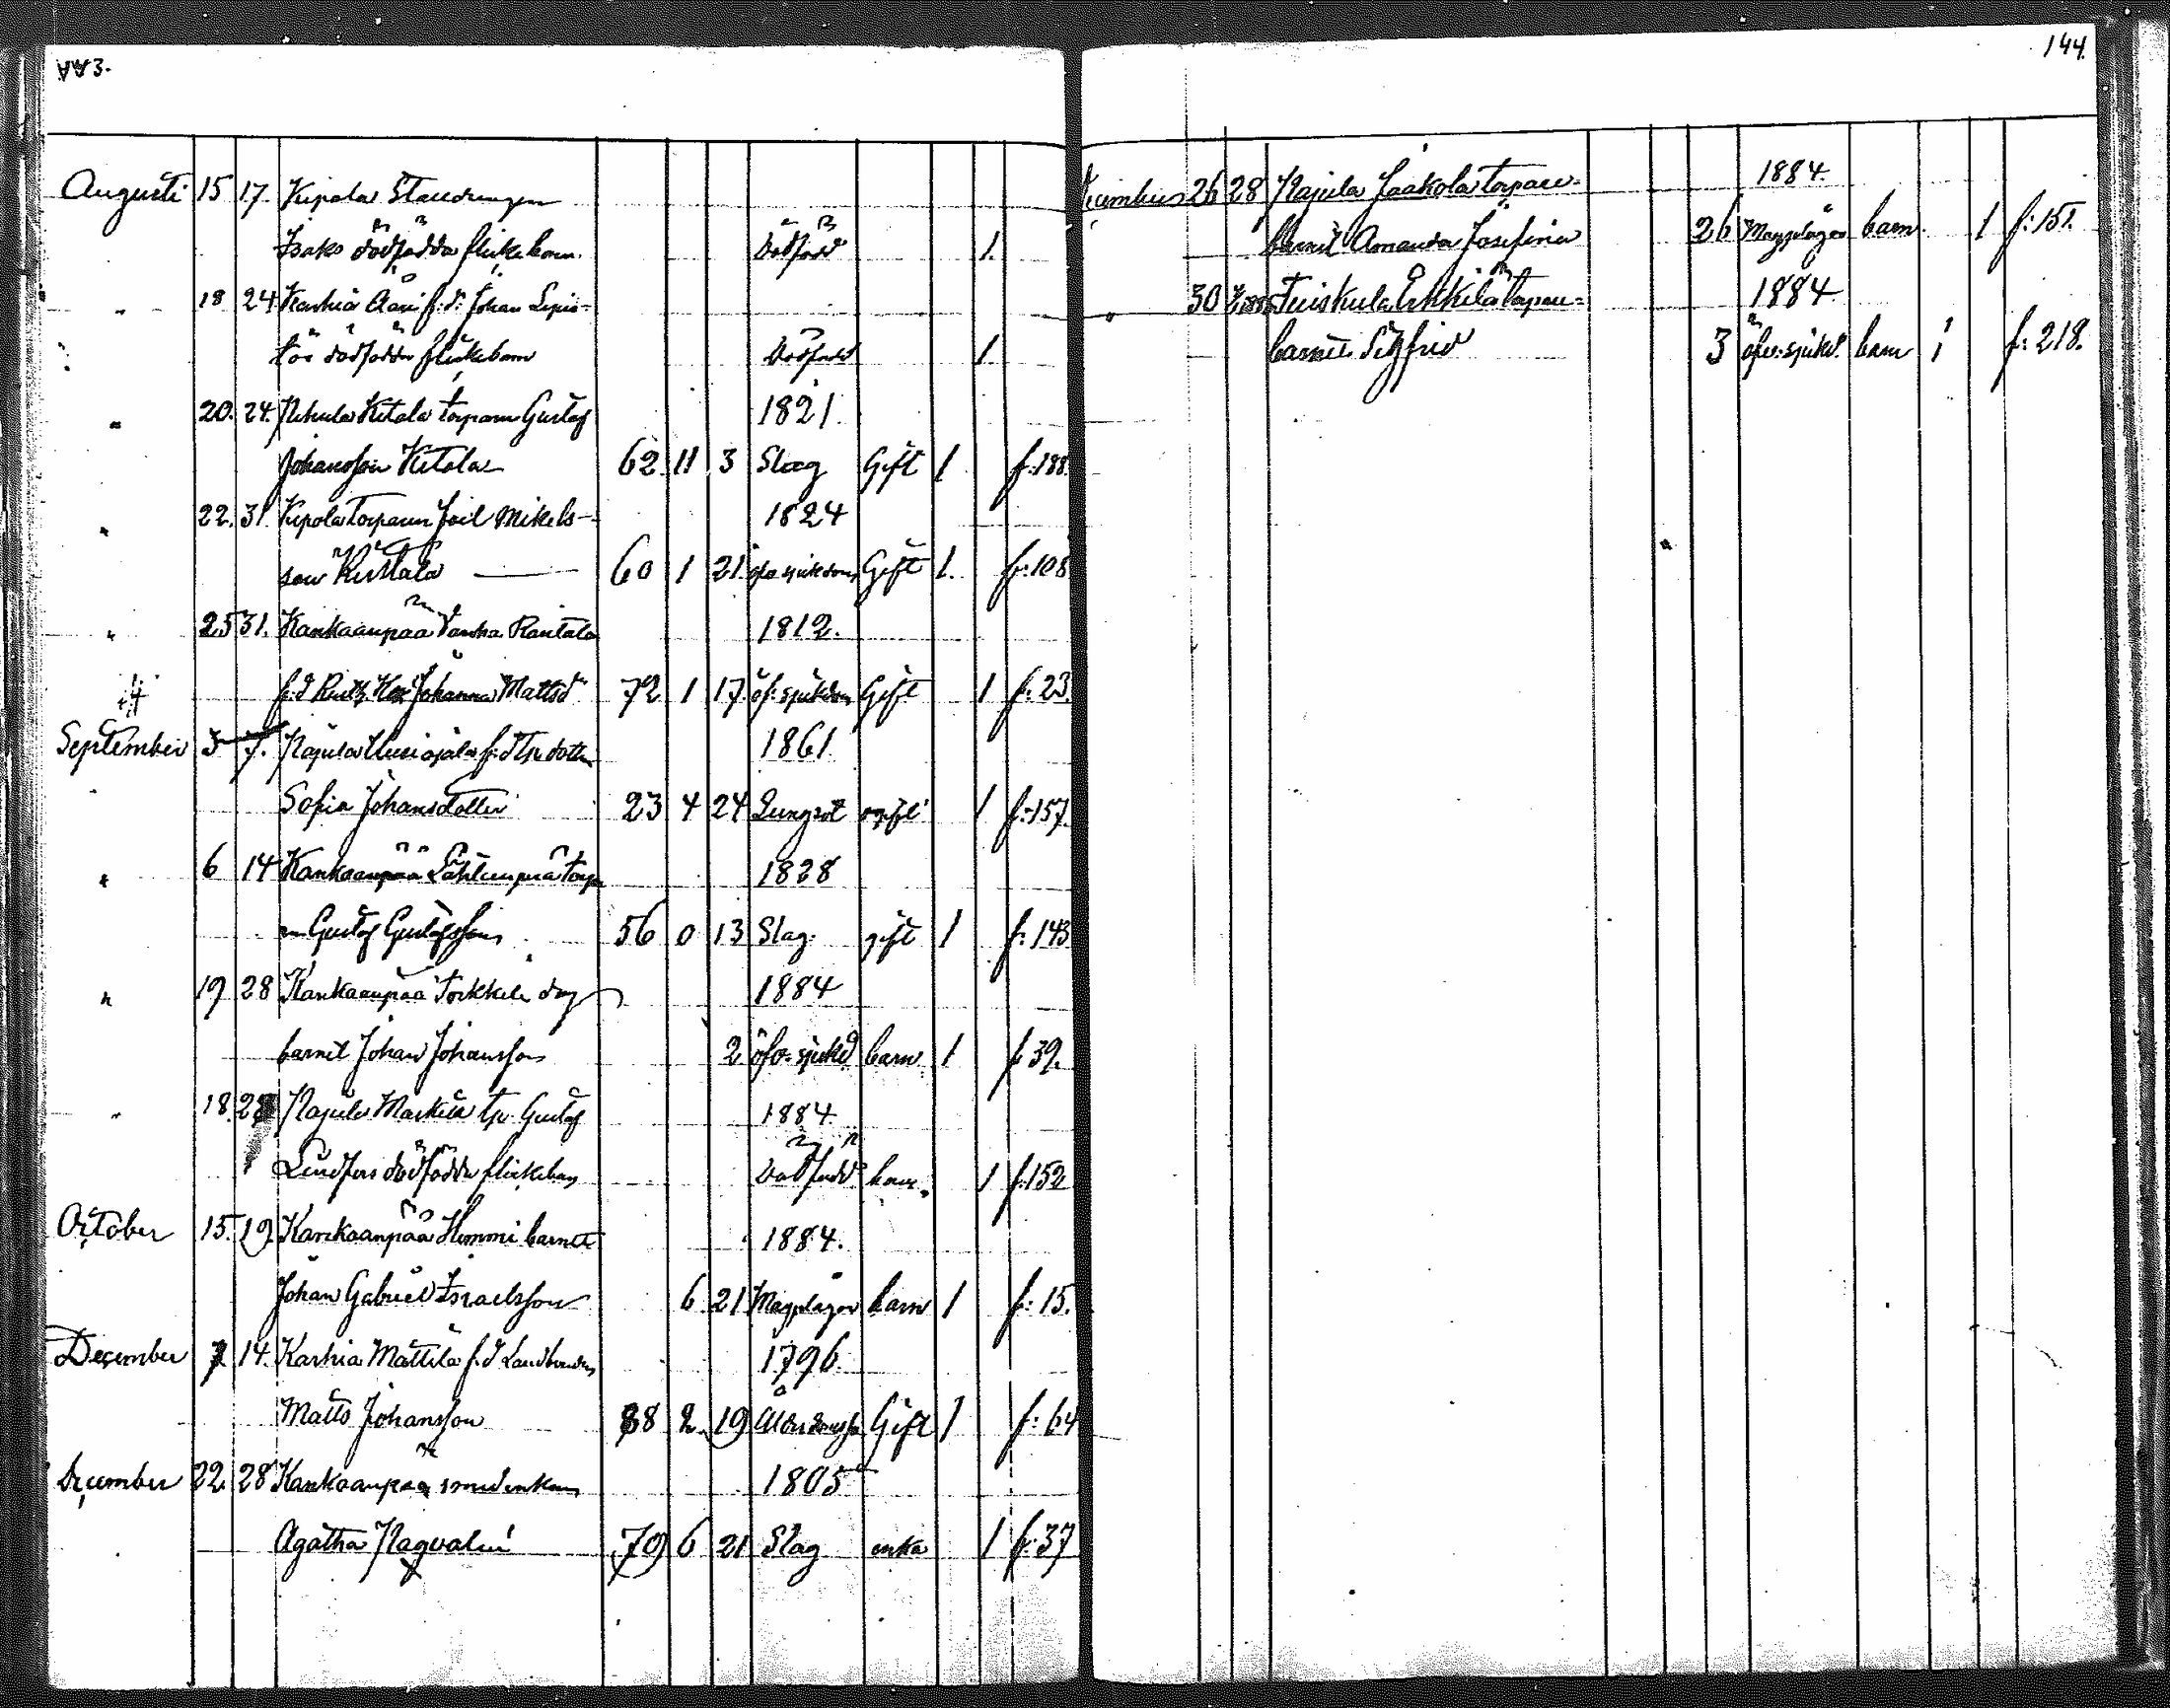 144.
Augusti 15 17. Kepola Staudrengen
Isaks dödfödda flickebarn. Dödfödd 1.
" 18 24 Karhia Ääri f.d. Johan Lepis-
töes dödfödda flickebarn Dödfödd 1
" 20. 24. Ketola torparen Gustaf 1821.
Johansson Ketola 62 11 3 Slag Gift 1 f: 188.
" 22. 31. Kepola Torparen Joel Mikels- 1824
son 60 1 21 öfv sjukdom Gift 1. f: 108
" 25 31. Kankaanpää Vanha Rantala 1812.
f.d Johanna Mattsd 72 1 17. öfv: sjukdom Gift 1 f: 23.
September 3 7. Najula Uusiojala f: d Tp: dottr 1861
Sofia Johansdotter 23 4 24 Lungsot ogift 1 f: 157.
" 6 14 Kankaanpää Lähteenpää torpa 1828
n Gustaf Gustafsson 56 0 13 Slag. gift 1 f: 143
" 19 28 Kankaanpää Torkkeli drg 1884
barnet Johan Johansson 2 öfv: sjukd barn 1 f 39.
" 18. 28 Najula tp. Gustaf 1884
Lindfors dödfödda flickebarn Dödfödd barn. 1 f: 152
October 15. 19. Kankaanpää Hemmi barnet 1884.
Johan Gabriel Israelsson 6 21 Magplågor barn 1 f: 15.
December 7 14. Karhia Mattila f.d Landbonden 1796
Matts Johansson 88 2 19 Gift 1 f: 64
December 22. 28 Kankaanpää 1805
Agatha Nagvalin 79 6 21 Slag enka 1 f: 37
December 26 28 Najula Jaakola torpare- 1884.
barnet Amanda Josefina 26 Magplågor barn. 1 f: 151.
" 30 Tuiskula Erkkilä torpare= 1884
barnet Sigfrid 3 öfv: sjukd. barn 1 f: 218.